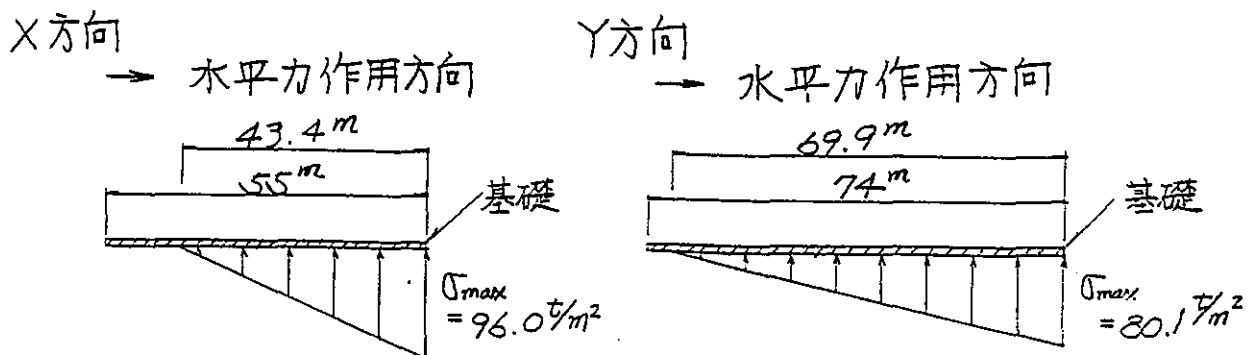 X方向
→ 水平力作用方向
43.4m
55m
基礎
σmax
=96.0t/m²
Y方向
→ 水平力作用方向
69.9m
74m
基礎
σmax
=80.1t/m²